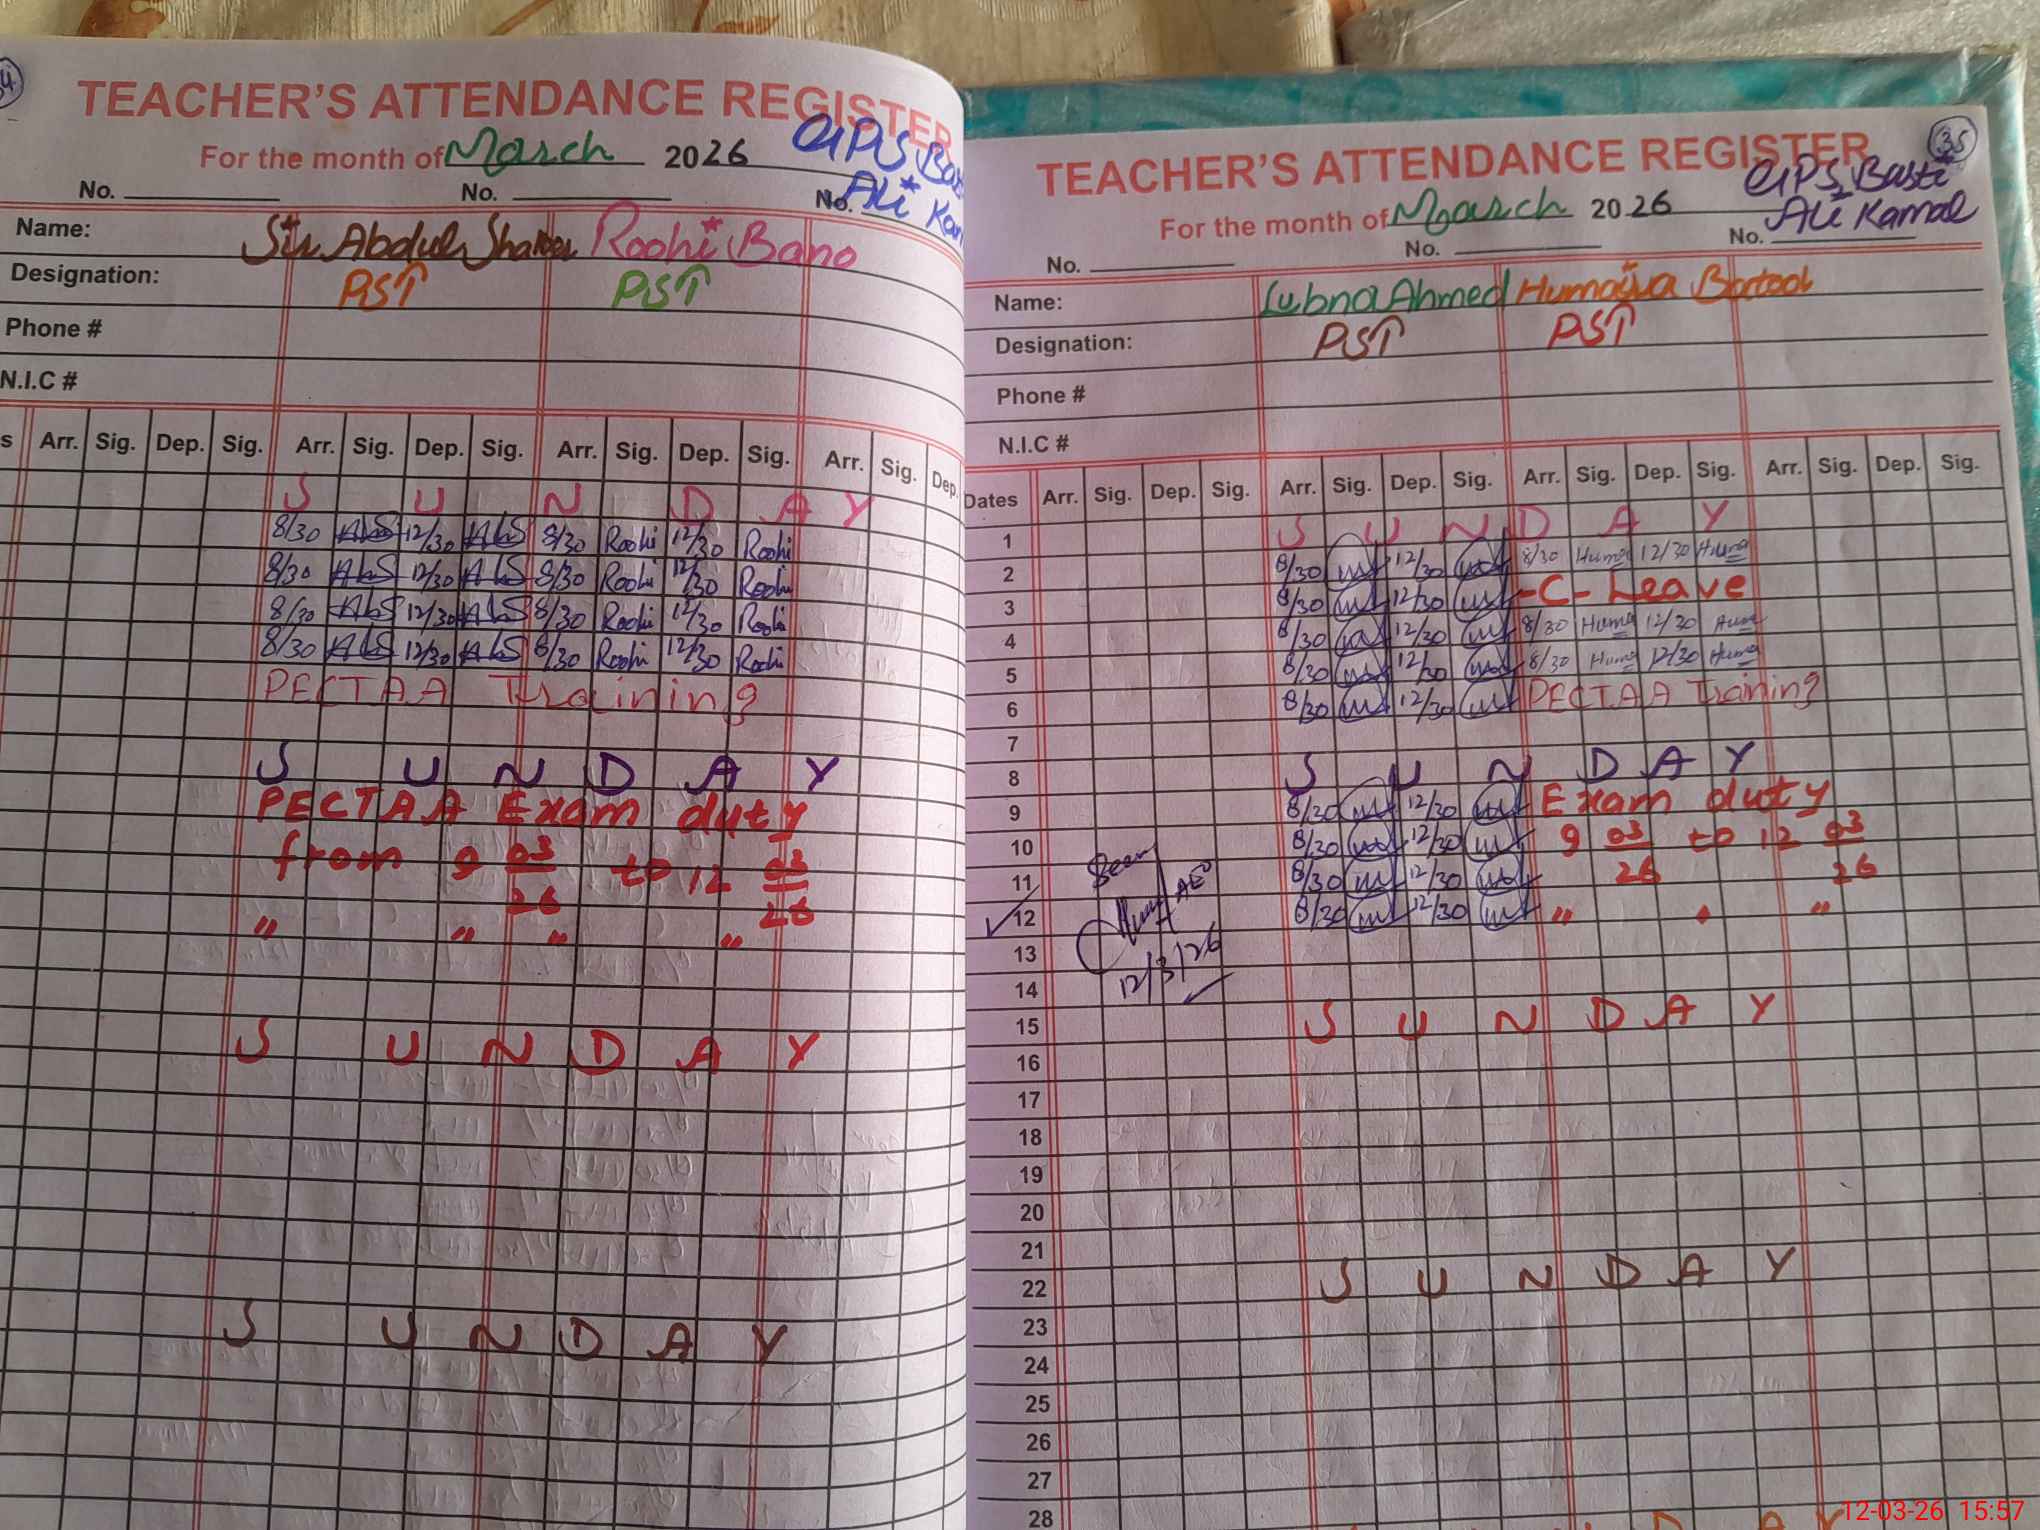 34
TEACHER'S ATTENDANCE REGISTER
For the month of March 2026
GPS Basti
Ali Kam
No. No. No.
Name: Sir Abdul Shakoor Roohi Bano
Designation: PST PST
Phone #
N.I.C #
s Arr. Sig. Dep. Sig. Arr. Sig. Dep. Sig. Arr. Sig. Dep. Sig. Arr. Sig. Dep.
S U N D A Y
8/30 12/30 8/30 Roohi 12/30 Roohi
8/30 12/30 8/30 Roohi 12/30 Roohi
8/30 12/30 8/30 Roohi 12/30 Roohi
8/30 12/30 8/30 Roohi 12/30 Roohi
PECTAA Training
S U N D A Y
PECTAA Exam duty
from 9 03/26 to 12 03/26
" " " "
S U N D A Y
S U N D A Y
35
TEACHER'S ATTENDANCE REGISTER
For the month of March 2026
GPS Basti
Ali Kamal
No. No. No.
Name: Lubna Ahmed Humaira Batool
Designation: PST PST
Phone #
N.I.C #
Dates Arr. Sig. Dep. Sig. Arr. Sig. Dep. Sig. Arr. Sig. Dep. Sig. Arr. Sig. Dep. Sig.
1 S U N D A Y
2 8/30 12/30 8/30 Huma 12/30 Huma
3 8/30 12/30 -C- Leave
4 8/30 12/30 8/30 Huma 12/30 Huma
5 8/30 12/30 8/30 Huma 12/30 Huma
6 8/30 12/30 PECTAA Training
7
8 S U N D A Y
9 8/30 12/30 Exam duty
10 8/30 12/30 9 03/26 to 12 03/26
11 Seen AEO 8/30 12/30
12 8/30 12/30 " " "
13 12/3/26
14
15 S U N D A Y
16
17
18
19
20
21
22 S U N D A Y
23
24
25
26
27
28 D A Y
12-03-26 15:57